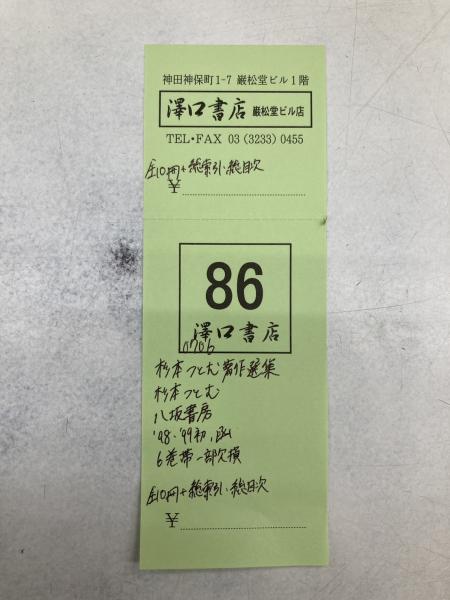 神田神保町1-7 巌松堂ビル1階
澤口書店 巌松堂ビル店
TEL・FAX 03 (3233) 0455
全10冊+総索引・総目次
¥
86
澤口書店
0706
杉本つとむ著作選集
杉本つとむ
八坂書房
'98-'99初,函
6巻帯一部欠損
全10冊+総索引・総目次
¥